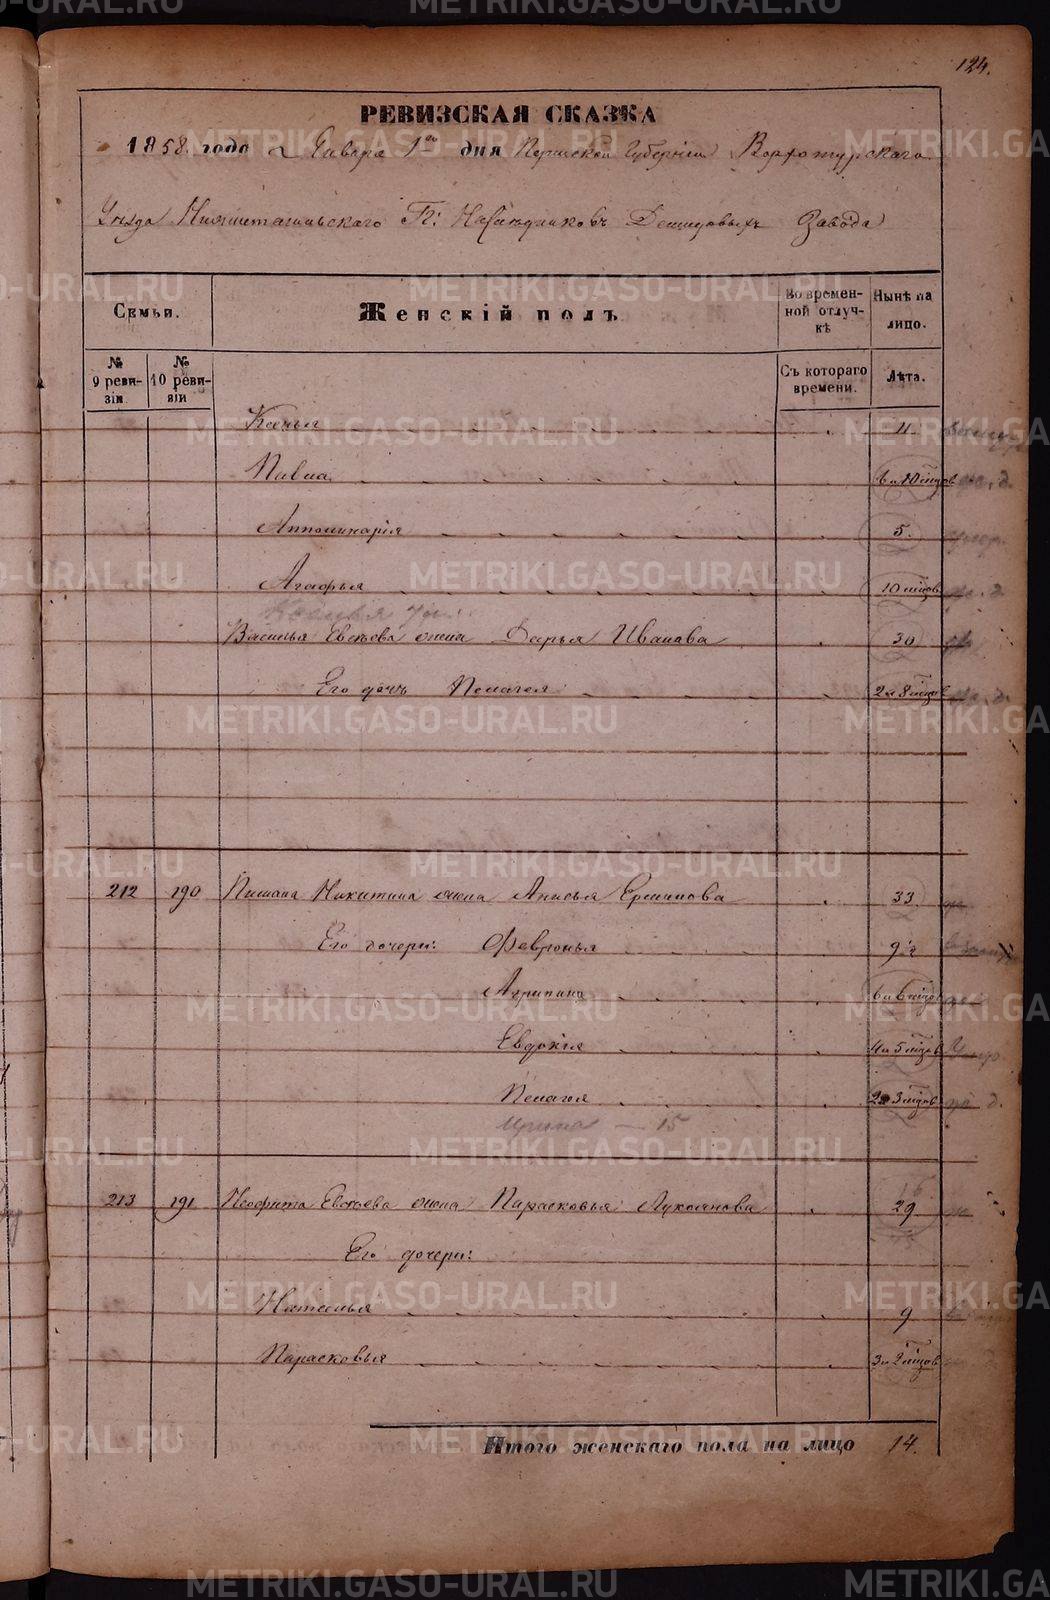 124.
РЕВИЗСКАЯ СКАЗКА
1858 года Генваря 1го дня Пермской Губерніи Верхотурскаго
Уѣзда Нижнетагильскаго Гг: Наслѣдниковъ Демидовыхъ Завода
Семьи. Женскій полъ Во временной отлучкѣ Нынѣ на лицо.
№ 9 ревизіи № 10 ревизіи Съ котораго времени. Лѣта.
Ксенья 11
Павла 6 и 10 мцов
Апполинарія 5.
Агафья 10 мцов
Василья Евсѣева жена Дарья Иванова 30
Его дочь Пелагея 2 и 8 мцов
212 190 Пимана Никитина жена Анисья 33
Его дочери: Февронья 9
Агрипина 6 и 6 мцов
Евдокія 4 и 5 мцов
Пелагея 2 и 3 мцов
Ирина — 15
213 191 Неофита Евсѣева жена Парасковья Лукоянова 29
Его дочери:
Наталья 9
Парасковья 3 и 2 мцов
Итого женскаго пола на лицо 14.
METRIKI.GASO-URAL.RU